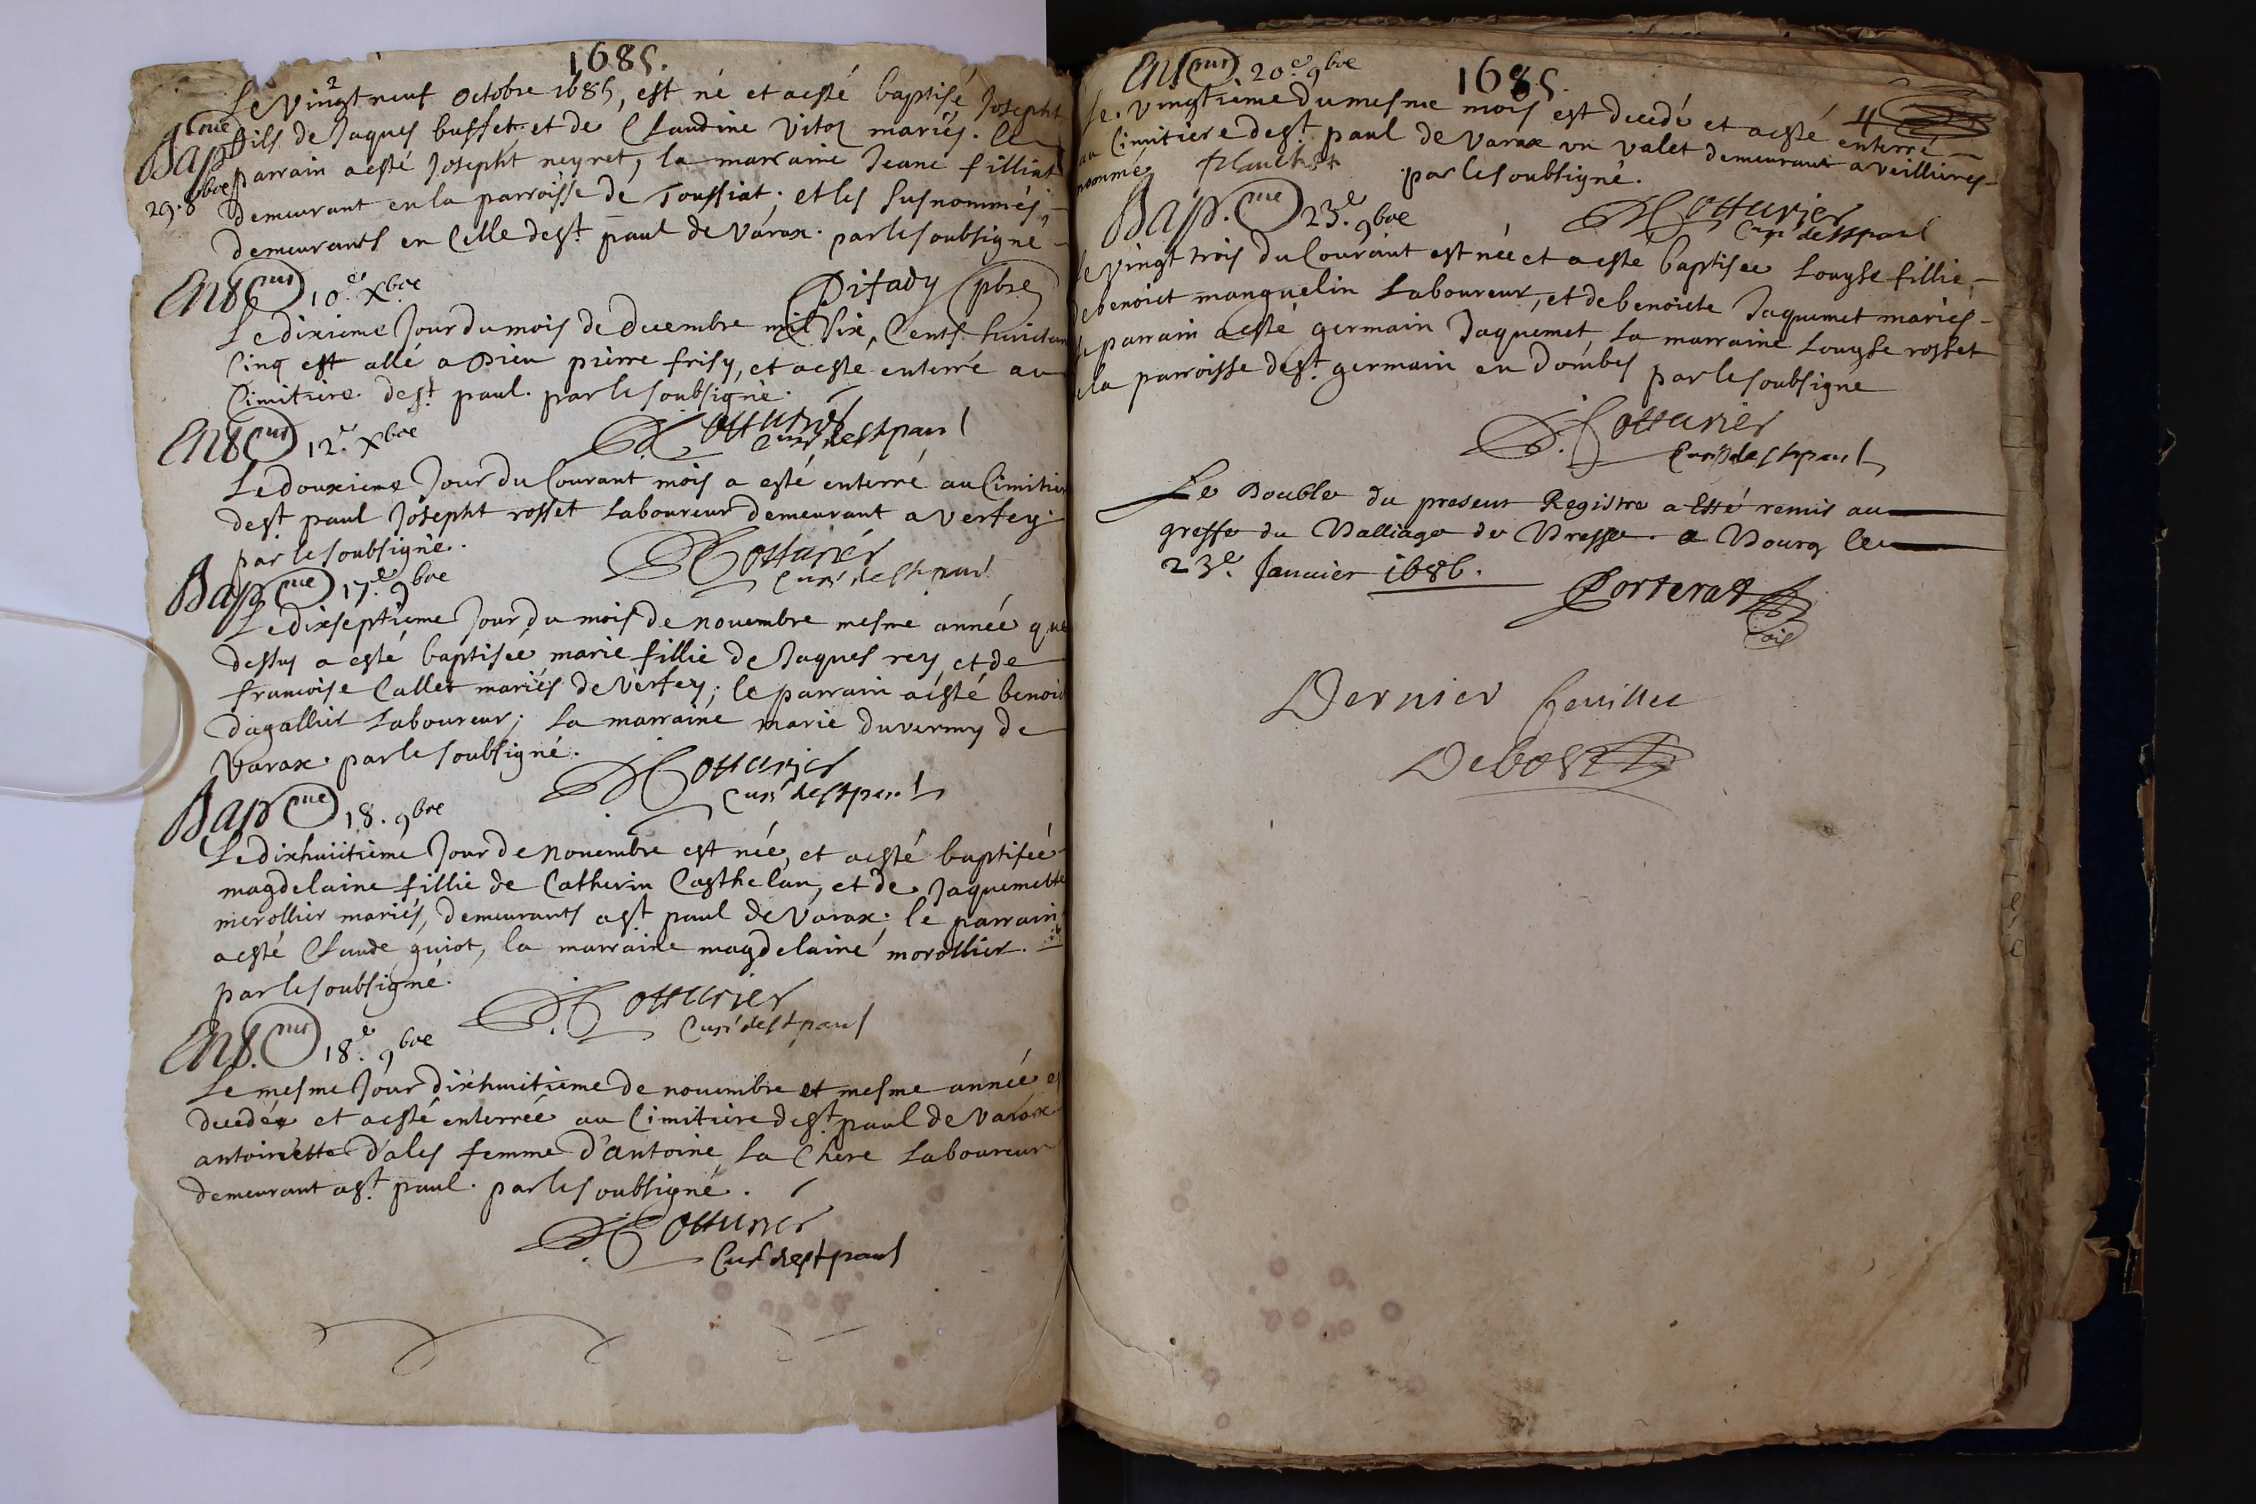 1685.
Le vingt neuf octobre 1685, est né et aesté baptisé Josepht
Bap.me
fils de Jaques buffet et de Claudine Vitoz mariés. Le
29. 8bre
parrain aesté Josepht neyret, la marraine Jeane filliat
demeurant en la parroisse de Toussiat; et les susnommés,
demeurants en Celle de st. paul de Varax. par le soubsigné
Pitady pbre
Ent.mt 10.e Xbre
Le dixieme Jour du mois de decembre mil six, Cents huictan
Cinq est allé a Dieu pierre frisy, et aesté enterré au
Cimitiere de st. paul. par le soubsigné.
Cotturier
Curé de st paul
Ent.mt 12.e Xbre
Le douxieme Jour du Courant mois a esté enterré au Cimitier
de st. paul Josepht rosset Laboureur demeurant a Verfey.
par le soubsigné.
Cotturier
Curé de st. paul
Bap.me 17.e 9bre
Le dixseptieme Jour du mois de nouembre mesme année que
dessus a esté baptisée marie fillie de Jaques rey et de
francoise Callet mariés de Verfey; le parrain aésté benoid
dagallier Laboureur; La marraine marie duverny de
Varax. par le soubsigné.
Cotturier
Curé de st paul
Bap.me 18. 9bre
Le dixhuitieme Jour de nouembre est née, et aesté baptisée
magdelaine fillie de Catherin Casthelan, et de Jaquemette
merollier mariés, demeurants a st. paul de Varax; le parrain
aesté Claude guiot, la marraine magdelaine morollier.
par le soubsigné.
Cotturier
Curé de st. paul
Ent.mt 18.e 9bre
Le mesme Jour dixhuitieme de nouembre et mesme année e
decedée et aesté enterreé au Cimitiere de st. paul de Varax
antoinette d'ales femme d'antoine La Chere Laboureur
demeurant a st. paul. par le soubsigné.
Cotturier
Curé de st paul
1685.
Ent.mt 20.e 9bre
4
Le vingtieme du mesme mois est decedé et aesté enterré
au Cimitiere de st. paul de Varax un valet demeurant a Veillieres
nommé par le soubsigné.
Cotturier
Curé de st paul
Bap.me 23.e 9bre
Le vingt trois du Courant est née et aesté baptisée Louyse fillie
de benoict manguelin Laboureur, et de benoicte Jaquemet mariés
le parrain aesté germain Jaquemet, la marraine Louyse rosset
de la parroisse de st. germain en dombes par le soubsigné
Cotturier
Curé de st paul
Le Double du present Registre a esté remis au
greffe du Balliage de Bresse a Bourg le
23.e Januier 1686.
Porterat
Dernier feuillet
Debost